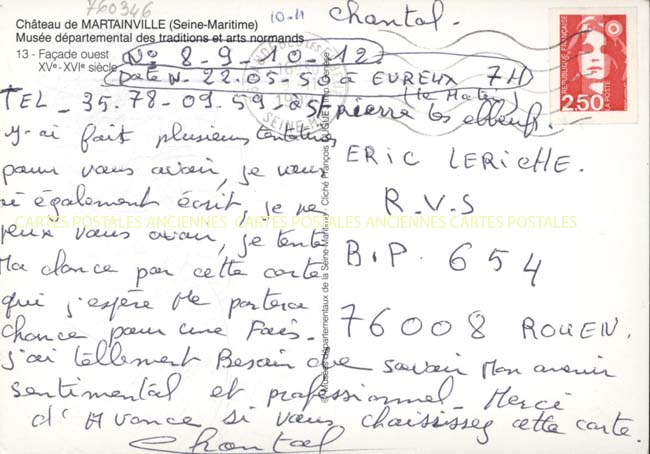 760346
10-11
Chantal.
Château de MARTAINVILLE (Seine-Maritime)
Musée départemental des traditions et arts normands
13 - Façade ouest
XVe-XVIe siècle
N° 8-9-10-12.
Date N. 22.05-50 à EVREUX 7H
(le Matin)
TEL_35-78-09-59 à St pierre les elbeuf.
REPUBLIQUE FRANÇAISE
LA POSTE
2,50
SEINE-M
J'ai fait plusieurs tentatives
pour vous avoir, je vous
ai également écrit, je ne
peux vous avoir, je tente
Ma chance par cette carte
qui j'espère Me portera
chance pour une Fois.
j'ai tellement Besoin de savoir Mon avenir
sentimental et professionnel. Merci
d'Avance si vous choisissez cette carte.
Chantal
ERIC LERICHE.
R.V.S
B.P. 654
76008 ROUEN.
© Musées départementaux de la Seine-Maritime - Cliché François DUGUÉ
CARTES POSTALES ANCIENNES CARTES POSTALES ANCIENNES CARTES POSTALES